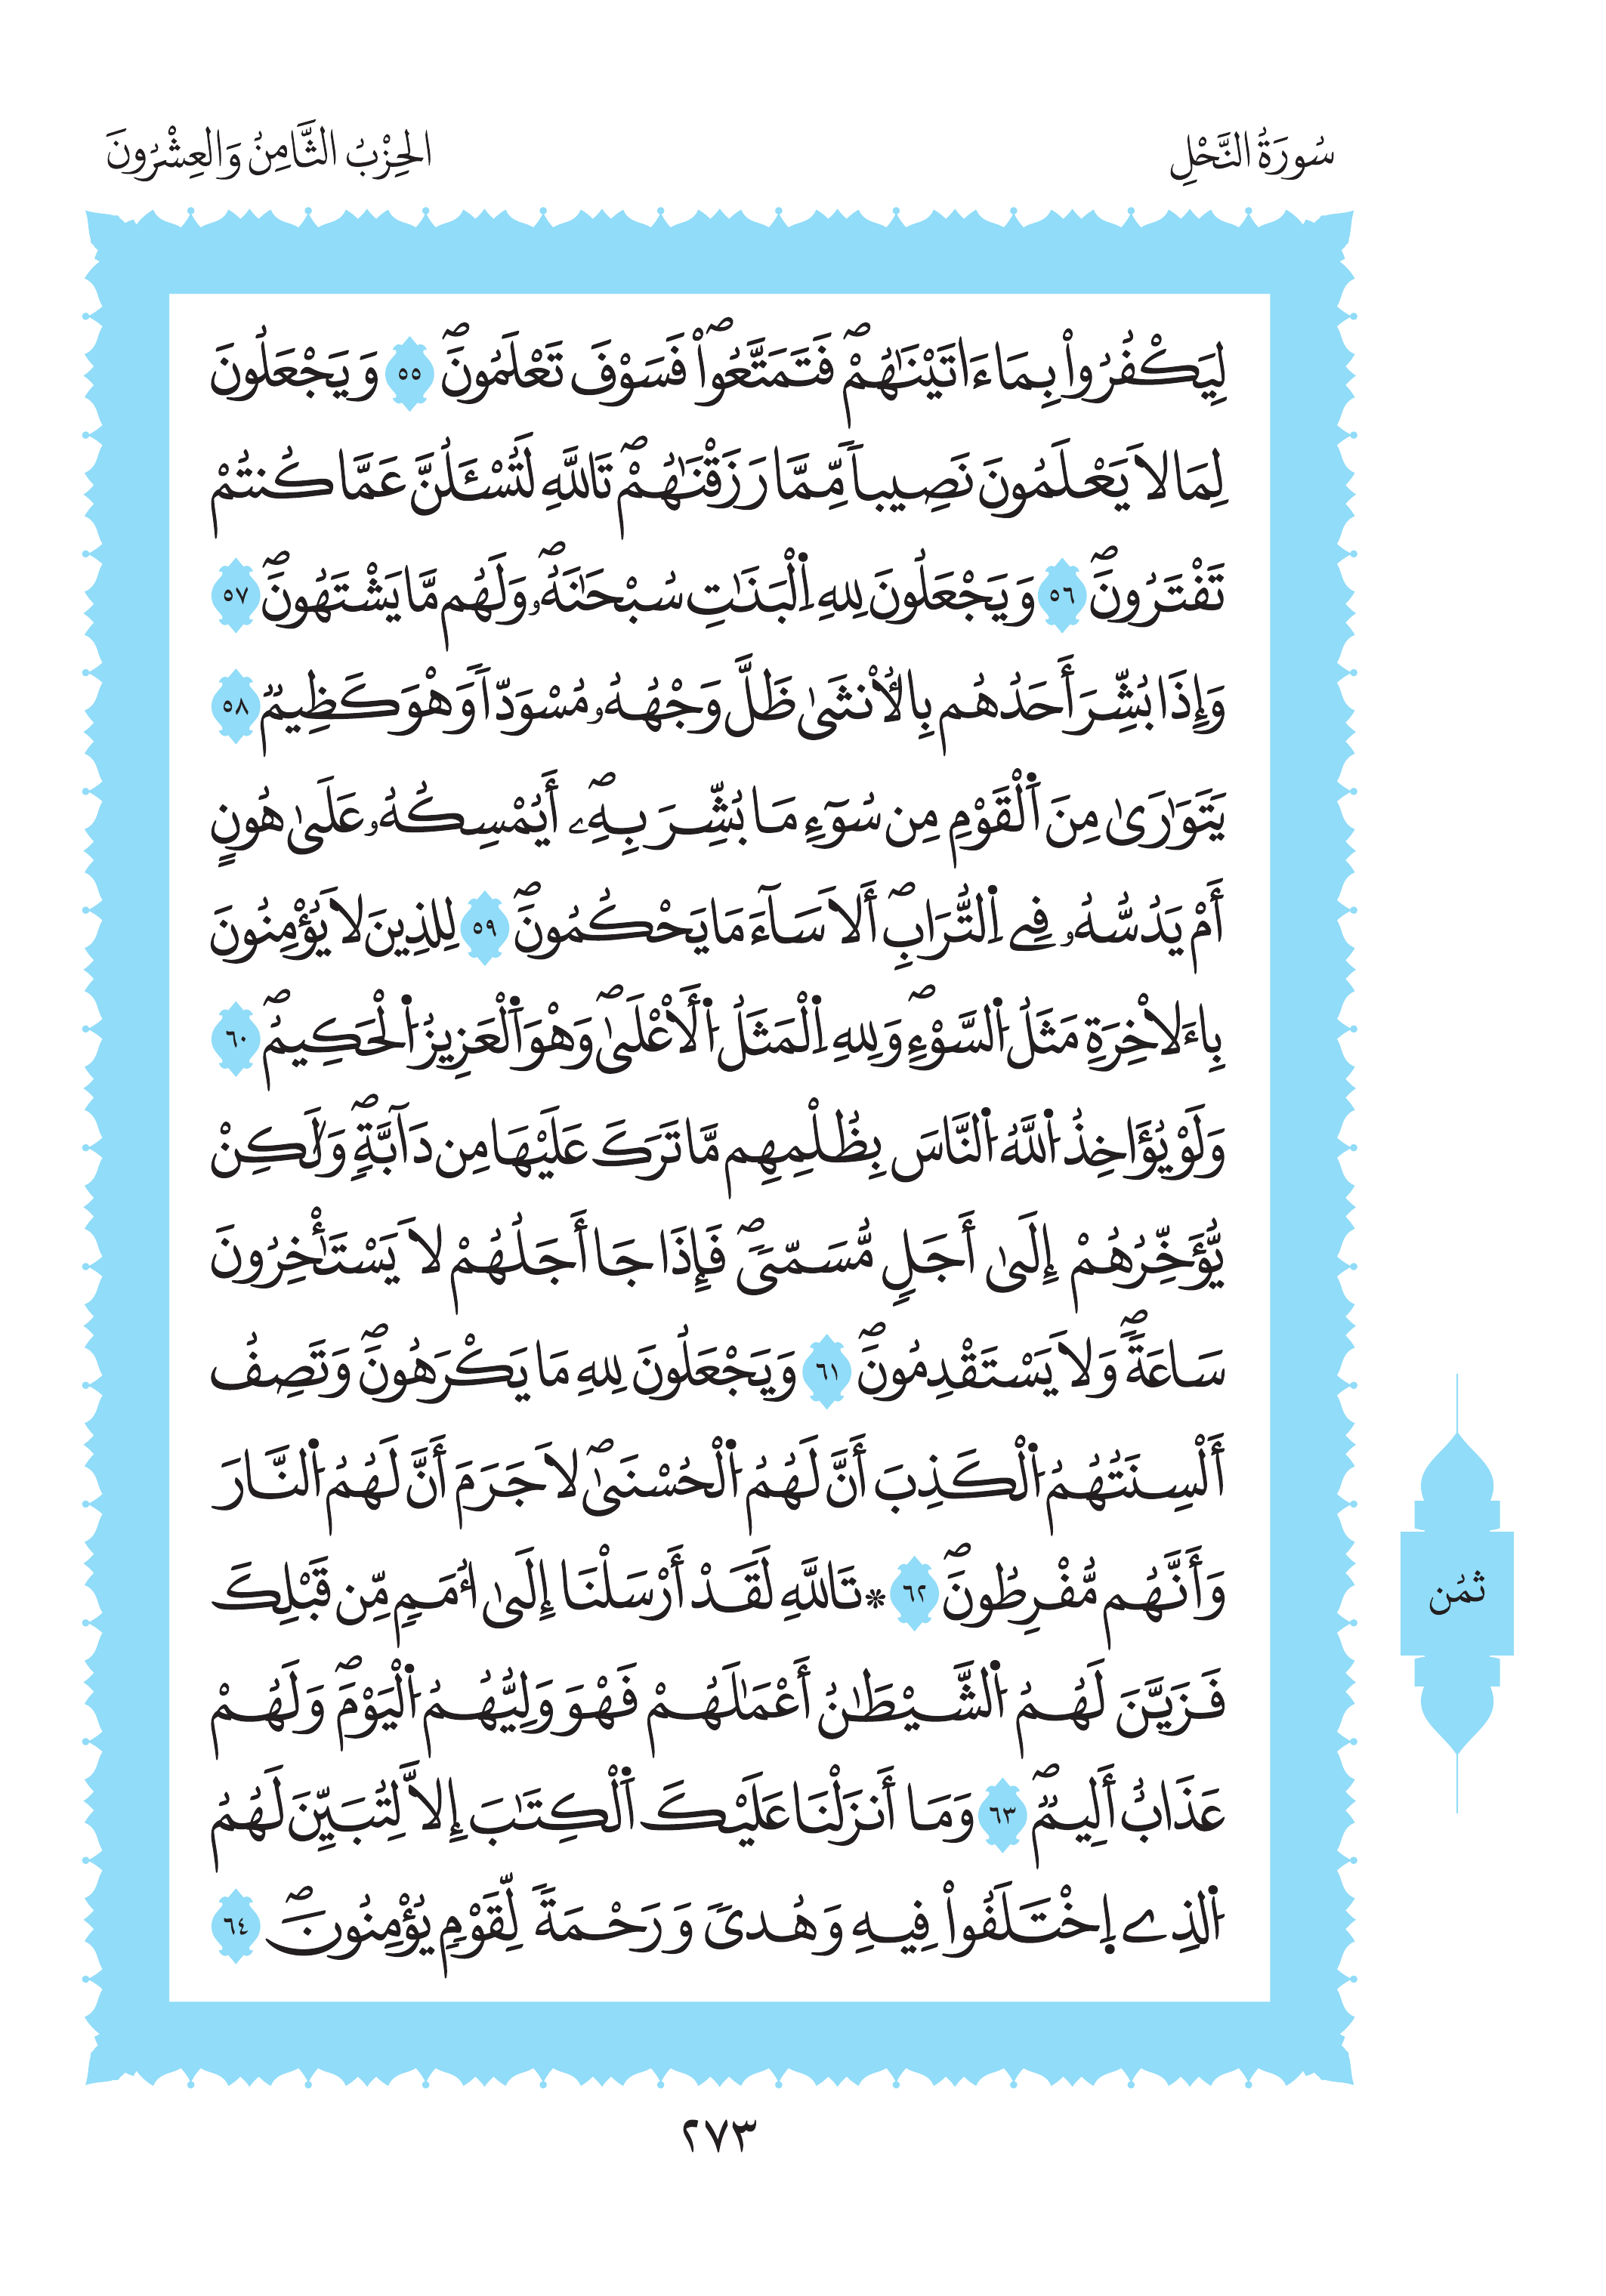 سُورَةُ النَّحْلِ
الحِزْبُ الثَّامِنُ وَالعِشْرُونَ
لِيَكْفُرُواْ بِمَا ءَاتَيْنَٰهُمْۖ فَتَمَتَّعُواْۖ فَسَوْفَ تَعْلَمُونَۖ ٥٥ وَيَجْعَلُونَ
لِمَا لَا يَعْلَمُونَ نَصِيباٗ مِّمَّا رَزَقْنَٰهُمْۖ تَاللَّهِ لَتُسْـَٔلُنَّ عَمَّا كُنتُمْ
تَفْتَرُونَۖ ٥٦ وَيَجْعَلُونَ لِلهِ اِ۬لْبَنَٰتِ سُبْحَٰنَهُۥۖ وَلَهُم مَّا يَشْتَهُونَۖ ٥٧
وَإِذَا بُشِّرَ أَحَدُهُم بِالُانْث۪يٰ ظَلَّ وَجْهُهُۥ مُسْوَدّاٗ وَهْوَ كَظِيمٞ ٥٨
يَتَوَٰر۪يٰ مِنَ اَ۬لْقَوْمِ مِن سُوٓءِ مَا بُشِّرَ بِهِۦۖ أَيُمْسِكُهُۥ عَلَيٰ هُونٍ
أَمْ يَدُسُّهُۥ فِے اِ۬لتُّرَابِۖ أَلَا سَآءَ مَا يَحْكُمُونَۖ ٥٩ لِلذِينَ لَا يُؤْمِنُونَ
بِاءَلاْخِرَةِ مَثَلُ اُ۬لسَّوْءِۖ وَلِلهِ اِ۬لْمَثَلُ اُ۬لَأعْل۪يٰۖ وَهْوَ اَ۬لْعَزِيزُ اُ۬لْحَكِيمُۖ ٦٠
وَلَوْ يُؤَاخِذُ اُ۬للَّهُ اُ۬لنَّاسَ بِظُلْمِهِم مَّا تَرَكَ عَلَيْهَا مِن دَآبَّةٖۖ وَلَٰكِنْ
يُّؤَخِّرُهُمْ إِلَيٰ أَجَلٖ مُّسَمّيٗۖ فَإِذَا جَا أَجَلُهُمْ لَا يَسْتَأْخِرُونَ
سَاعَةٗۖ وَلَا يَسْتَقْدِمُونَۖ ٦١ وَيَجْعَلُونَ لِلهِ مَا يَكْرَهُونَۖ وَتَصِفُ
أَلْسِنَتُهُمُ اُ۬لْكَذِبَ أَنَّ لَهُمُ اُ۬لْحُسْن۪يٰۖ لَا جَرَمَ أَنَّ لَهُمُ اُ۬لنَّارَ
وَأَنَّهُم مُّفْرِطُونَۖ ٦٢ ۞تَاللَّهِ لَقَدْ أَرْسَلْنَا إِلَيٰ أُمَمٖ مِّن قَبْلِكَ
فَزَيَّنَ لَهُمُ اُ۬لشَّيْطَٰنُ أَعْمَٰلَهُمْ فَهْوَ وَلِيُّهُمُ اُ۬لْيَوْمَۖ وَلَهُمْ
عَذَابٌ أَلِيمٞۖ ٦٣ وَمَا أَنزَلْنَا عَلَيْكَ اَ۬لْكِتَٰبَ إِلَّا لِتُبَيِّنَ لَهُمُ
اُ۬لذِے اِ۪خْتَلَفُواْ فِيهِ وَهُديٗ وَرَحْمَةٗ لِّقَوْمٖ يُؤْمِنُونَۖ ٦٤
ثمُن
٢٧٣